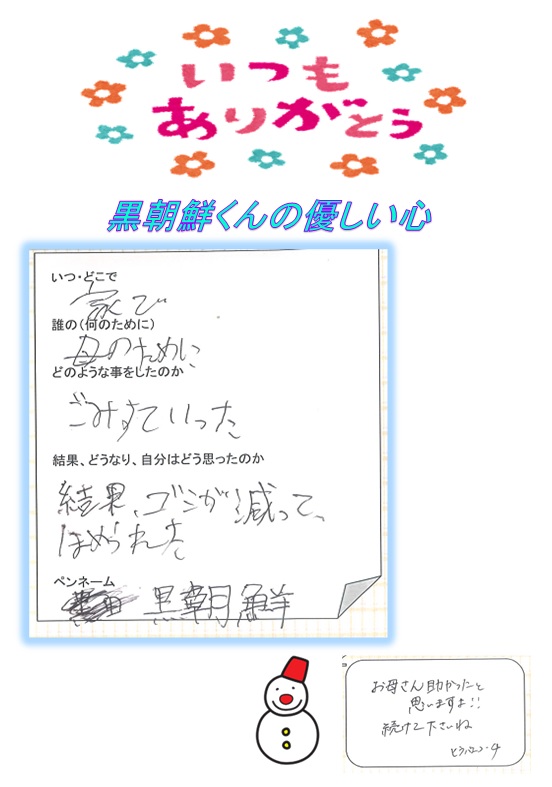 いつも
ありがとう
黒朝鮮くんの優しい心
いつ・どこで
家で
誰の(何のために)
母のために
どのような事をしたのか
ごみすていった
結果、どうなり、自分はどう思ったのか
結果、ゴミが減って、
ほめられた
ペンネーム
黒朝鮮
お母さん助かったと
思いますよ!!
続けて下さいね